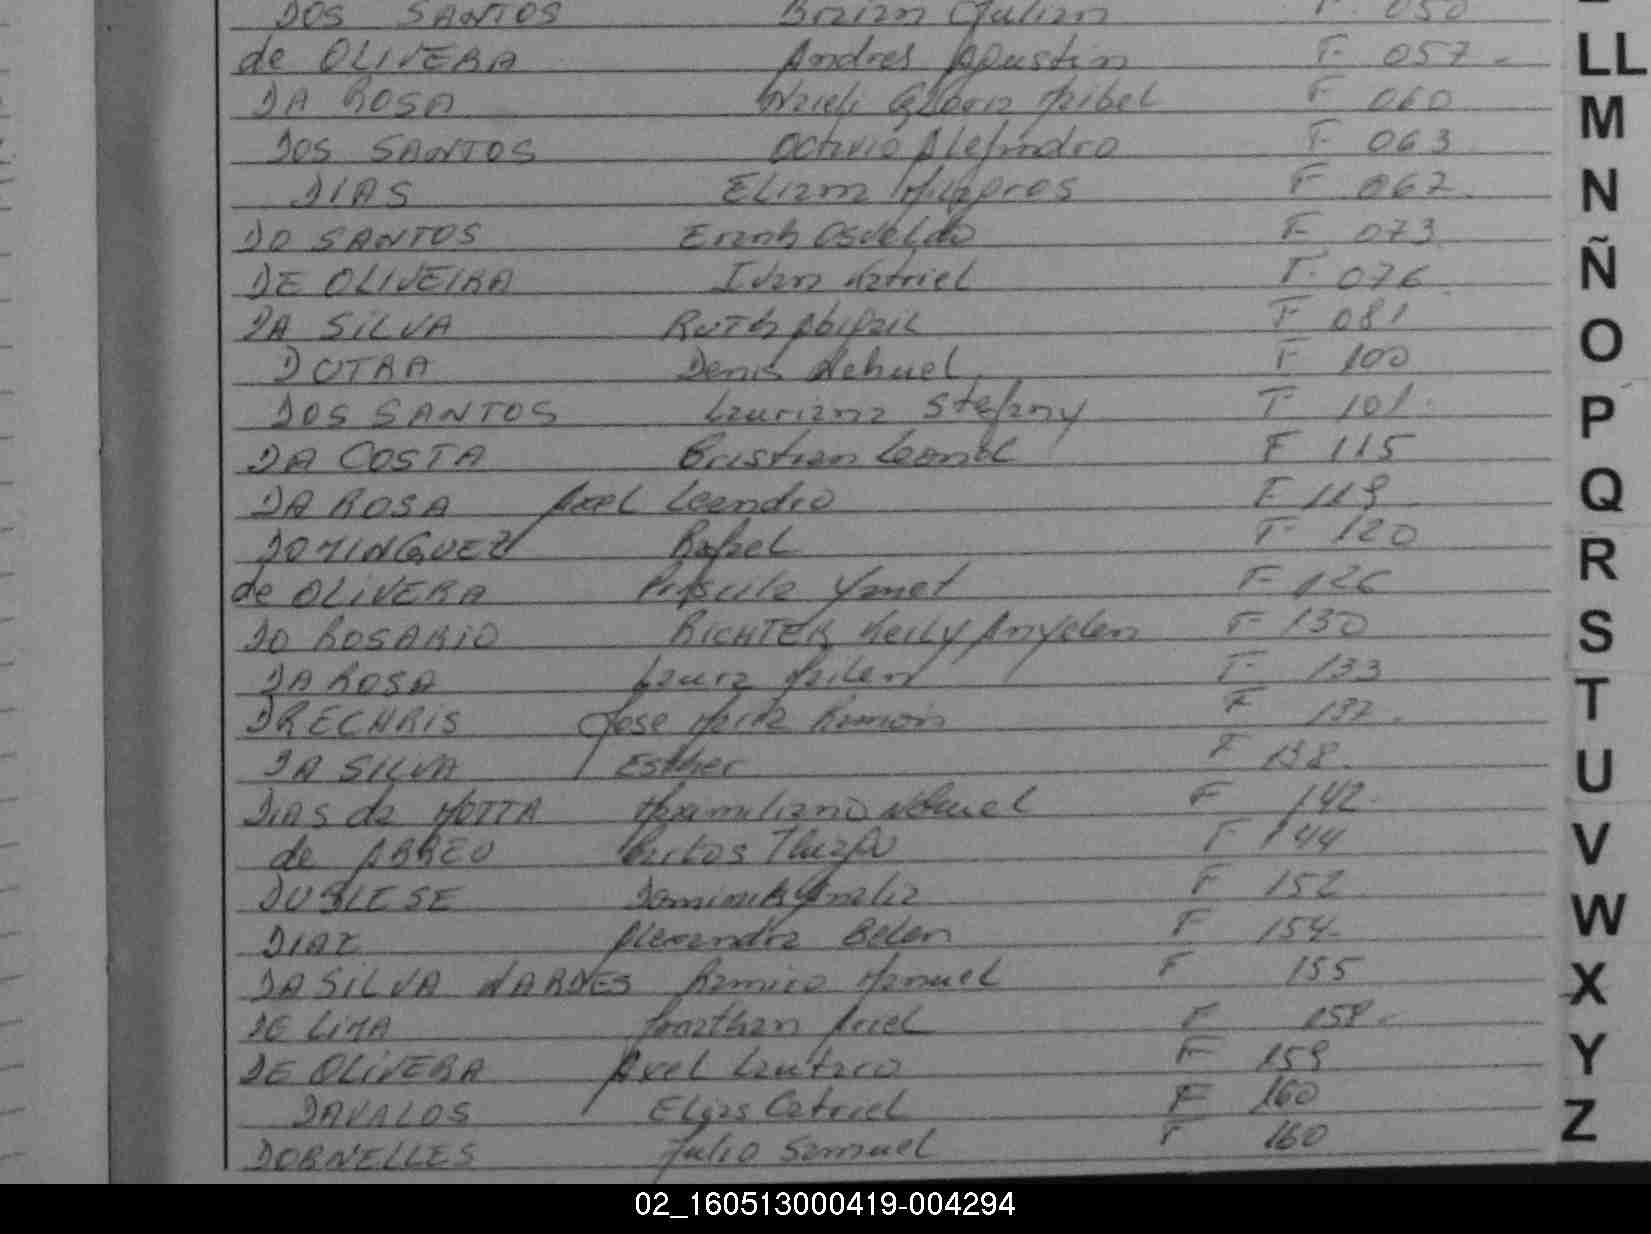 DOS SANTOS Brian Julian F. 050
de OLIVERA Andres Agustin F. 057.
DA ROSA Gloria Maibel F 060
DOS SANTOS Octavio Alejandro F. 063
DIAS Eliam Milagros F 067.
DO SANTOS Erank Osvaldo F. 073
DE OLIVEIRA Ivan Natriel F. 076.
DA SILVA Ruth Abigail F 081
DUTRA Denis Nahuel F 100
DOS SANTOS Lauriana Stefany F 101.
DA COSTA Cristian Leonel F 115
DA ROSA Axel Leandro F 119
DOMINGUEZ Rafael F 120
de OLIVERA Priscila Yanet F 126
DO ROSARIO RICHTER Keily Anyelen F 130
DA ROSA Laura Mailen F. 133
DRECHRIS Jose Maria Ramon F 137.
DA SILVA Esther F 138.
DIAS da MOTTA Maximiliano Nahuel F 142.
de ABREU Carlos F 144
DUBLESE F 152
DIAZ Alexandra Belen F 154.
DA SILVA NARDES Ramiro Manuel F 155
DE LIMA Jonathan Ariel F 158.
DE OLIVERA Axel Lautaro F 159
DAVALOS Elias Catriel F 160
DORNELLES Julio Samuel F 160
LL
M
N
Ñ
O
P
Q
R
S
T
U
V
W
X
Y
Z
02_160513000419-004294